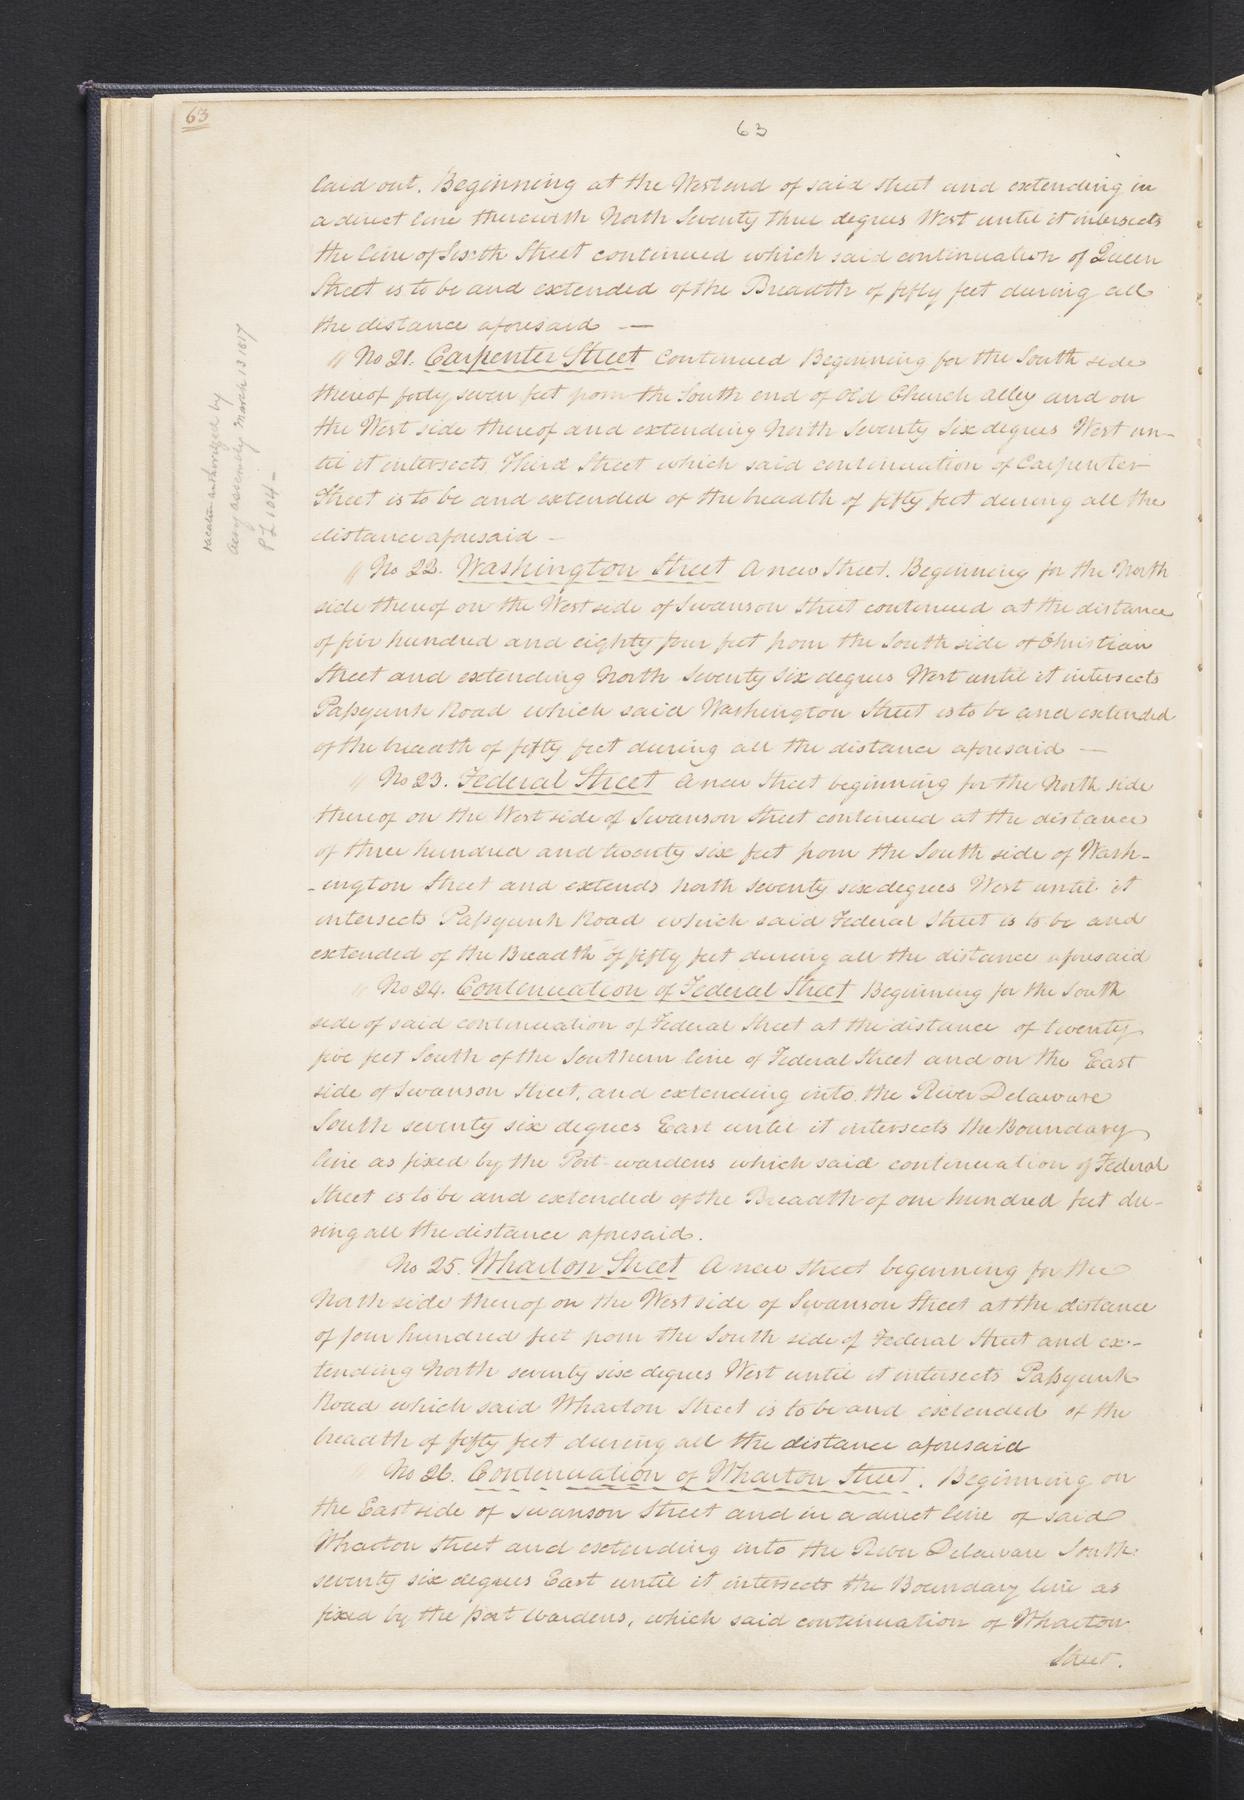 63
63
laid out. Beginning at the West end of said Street and extending in
a direct line therewith North Seventy three degrees West until it intersects
the line of Sixth Street continued which said continuation of Queen
Street is to be and extended of the Breadth of fifty feet during all
the distance aforesaid —
" No 21. Carpenter Street Continued Beginning for the South side
thereof forty seven feet from the South end of Old Church Alley and on
the West side thereof and extending North Seventy Six degrees West un-
til it intersects Third Street which said continuation of Carpenter
Street is to be and extended of the breadth of fifty feet during all the
distance aforesaid –
vacation authorized by
Assembly March 13 1817
P L 104 –
" No 22. Washington Street A new Street. Beginning for the North
side thereof on the West side of Swanson Street continued at the distance
of five hundred and eighty four feet from the South side of Christian
Street and extending North Seventy Six degrees West until it intersects
Paſsyunk Road which said Washington Street is to be and extended
of the breadth of fifty feet during all the distance aforesaid —
" No 23. Federal Street A new Street beginning for the North side
thereof on the West side of Swanson Street continued at the distance
of three hundred and twenty six feet from the South side of Wash-
-ington Street and extends North Seventy six degrees West until it
intersects Paſsyunk Road which said Federal Street is to be and
extended of the Breadth of fifty feet during all the distance aforesaid
" No 24. Continuation of Federal Street Beginning for the South
side of said continuation of Federal Street at the distance of twenty
five feet South of the Southern line of Federal Street and on the East
side of Swanson Street, and extending into the River Delaware
South seventy six degrees East until it intersects the Boundary
line as fixed by the Port-wardens which said continuation of Federal
Street is to be and extended of the Breadth of one hundred feet du-
ring all the distance aforesaid.
" No 25. Wharton Street A new Street beginning for the
North side thereof on the West side of Swanson Street at the distance
of four hundred feet from the South side of Federal Street and ex-
tending North seventy six degrees West until it intersects Paſsyunk
Road which said Wharton Street is to be and extended of the
breadth of fifty feet during all the distance aforesaid
" No 26. Continuation of Wharton Street. Beginning on
the East side of Swanson Street and in a direct line of said
Wharton Street and extending into the River Delaware South
seventy six degrees East until it intersects the Boundary line as
fixed by the Port Wardens, which said continuation of Wharton
Street.